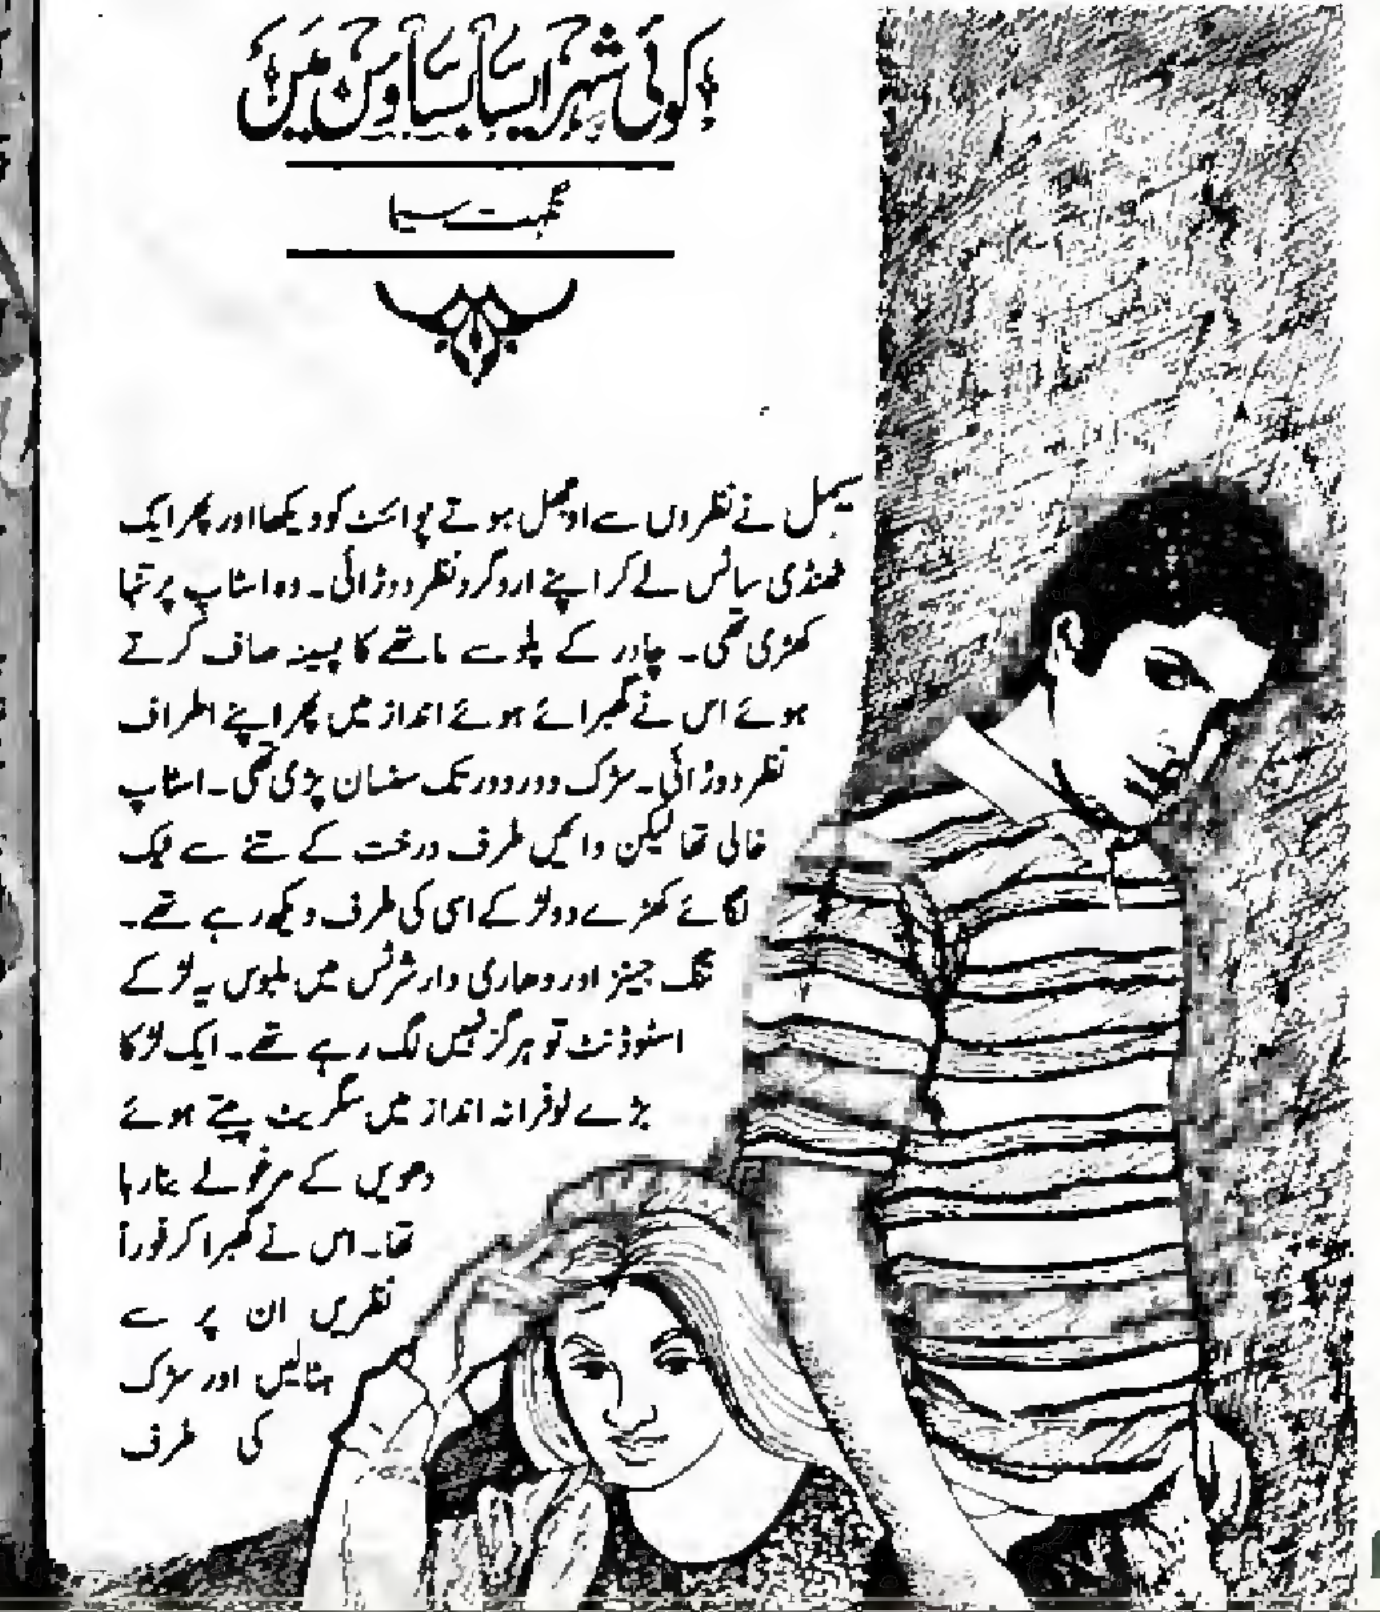 کوئی شہر ایسا بساؤں میں
نگہت سیما
سیمل نے نظروں سے اوجھل ہوتے پوائنٹ کو دیکھا اور پھر ایک
ٹھنڈی سانس لے کر اپنے اردگرد نظر دوڑائی۔ وہ اسٹاپ پر تنہا
کھڑی تھی۔ چادر کے پلو سے ماتھے کا پسینہ صاف کرتے
ہوئے اس نے گھبرائے ہوئے انداز میں پھر اپنے اطراف
نظر دوڑائی۔ سڑک دور دور تک سنسان پڑی تھی۔ اسٹاپ
خالی تھا لیکن دائیں طرف درخت کے تنے سے ٹیک
لگائے کھڑے دو لڑکے اسی کی طرف دیکھ رہے تھے۔
تنگ جینز اور دھاری دار شرٹس میں ملبوس یہ لڑکے
اسٹوڈنٹ تو ہرگز نہیں لگ رہے تھے۔ ایک لڑکا
بڑے لوفرانہ انداز میں سگریٹ پیتے ہوئے
دھویں کے مرغولے بنا رہا
تھا۔ اس نے گھبرا کر فوراً
نظریں ان پر سے
ہٹالیں اور سڑک
کی طرف